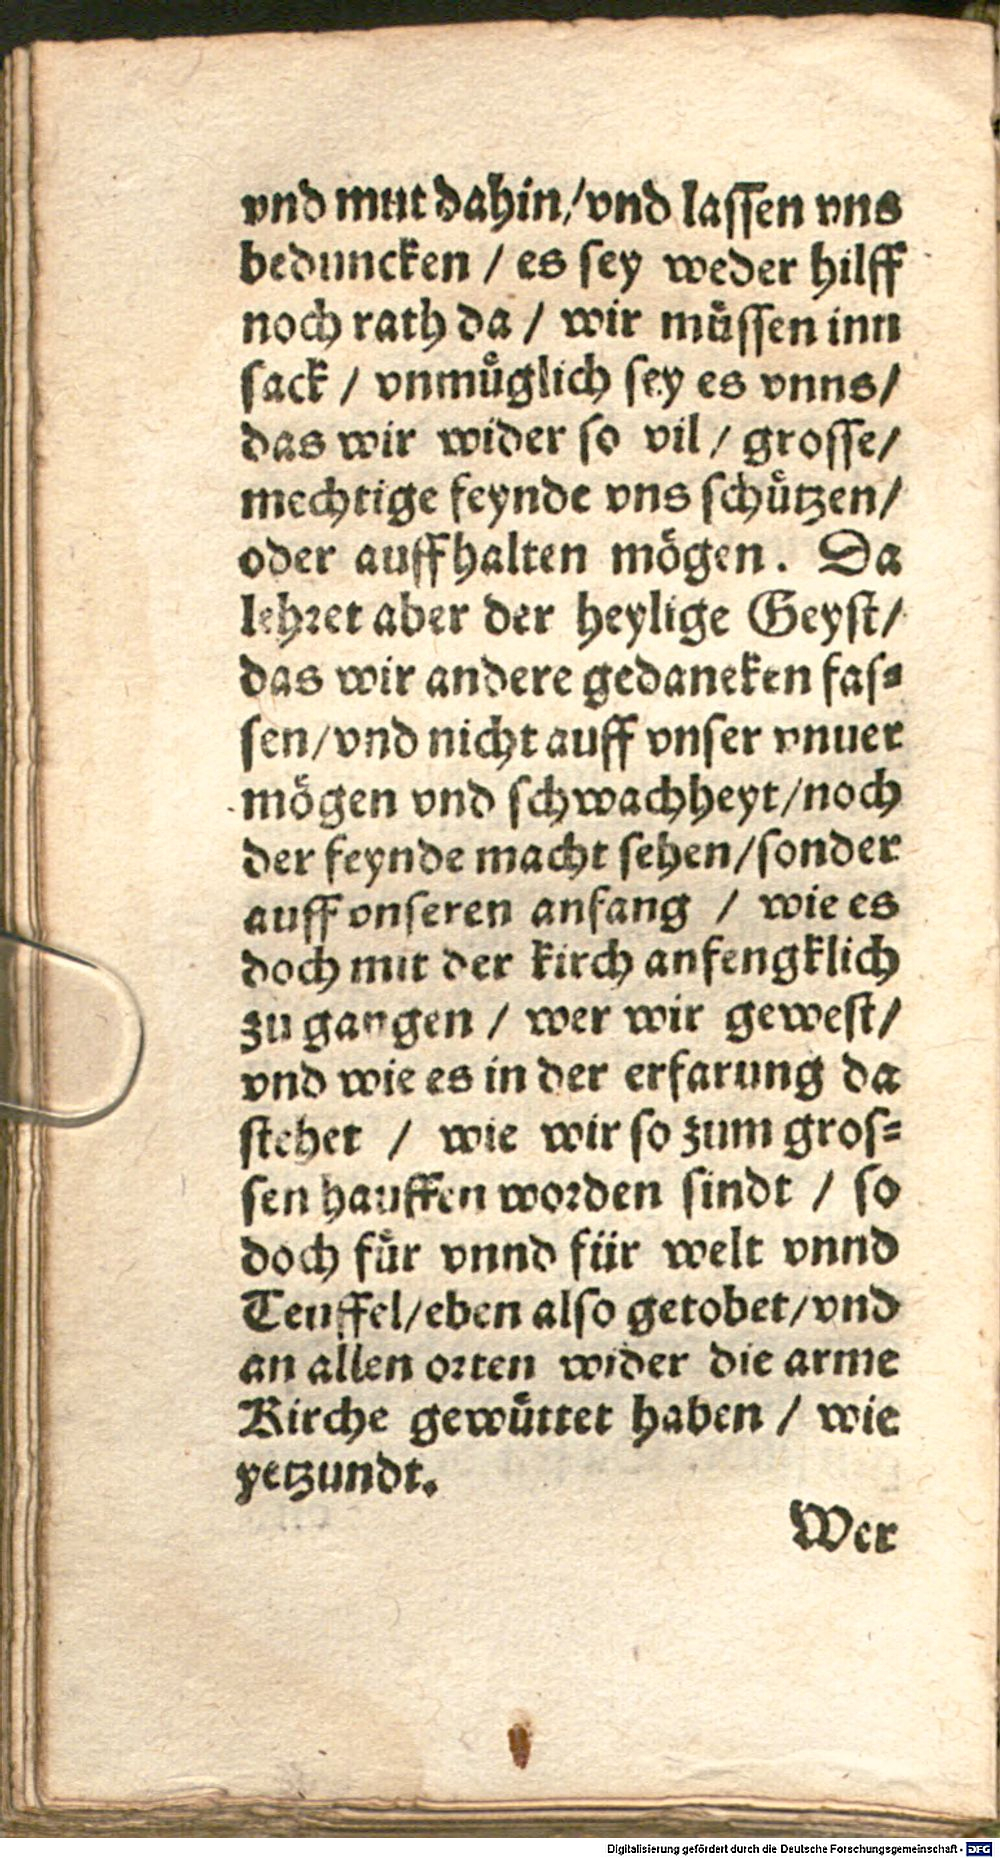 vnd mut dahin / vnd lassen vns
beduncken / es sey weder hilff
noch rath da / wir müssen inn
sack / vnmüglich sey es vnns /
das wir wider so vil / grosse /
mechtige feynde vns schützen /
oder auffhalten mögen. Da
lehret aber der heylige Geyst /
das wir andere gedaneken fas=
sen / vnd nicht auff vnser vnuer
mögen vnd schwachheyt / noch
der feynde macht sehen / sonder
auff vnseren anfang / wie es
doch mit der kirch anfengklich
zu gangen / wer wir gewest /
vnd wie es in der erfarung da
stehet / wie wir so zum gros=
sen hauffen worden sindt / so
doch für vnnd für welt vnnd
Teuffel / eben also getobet / vnd
an allen orten wider die arme
Kirche gewüttet haben / wie
yetzundt.
Wer
Digitalisierung gefördert durch die Deutsche Forschungsgemeinschaft - DFG